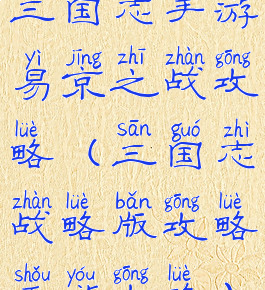 三国志手游
yì jīng zhī zhàn gōng
易京之战攻
lüè sān guó zhì
略(三国志
zhàn lüè bǎn gōng lüè
战略版攻略
shǒu yóu gōng lüè